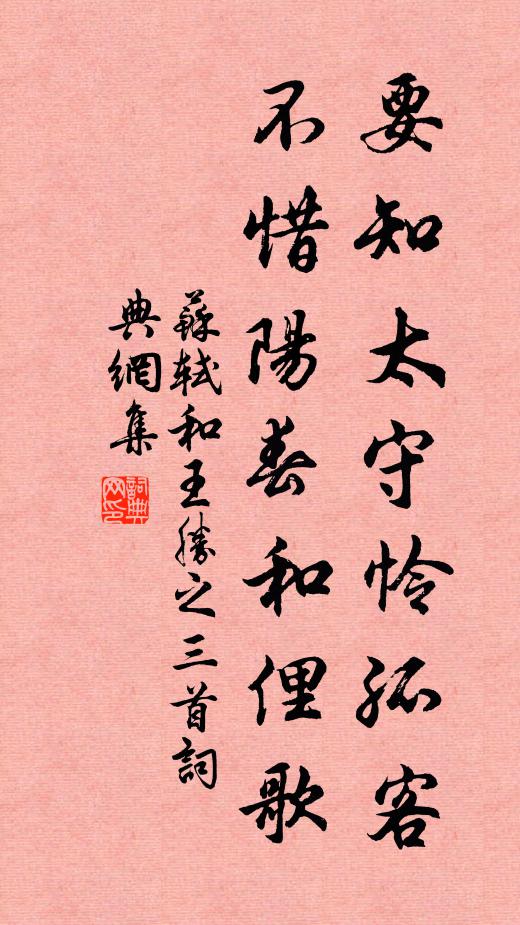 要知太守怜孤客
不惜陽春和俚歌
蘇軾和王勝之三首詞
典網集
詞典网印